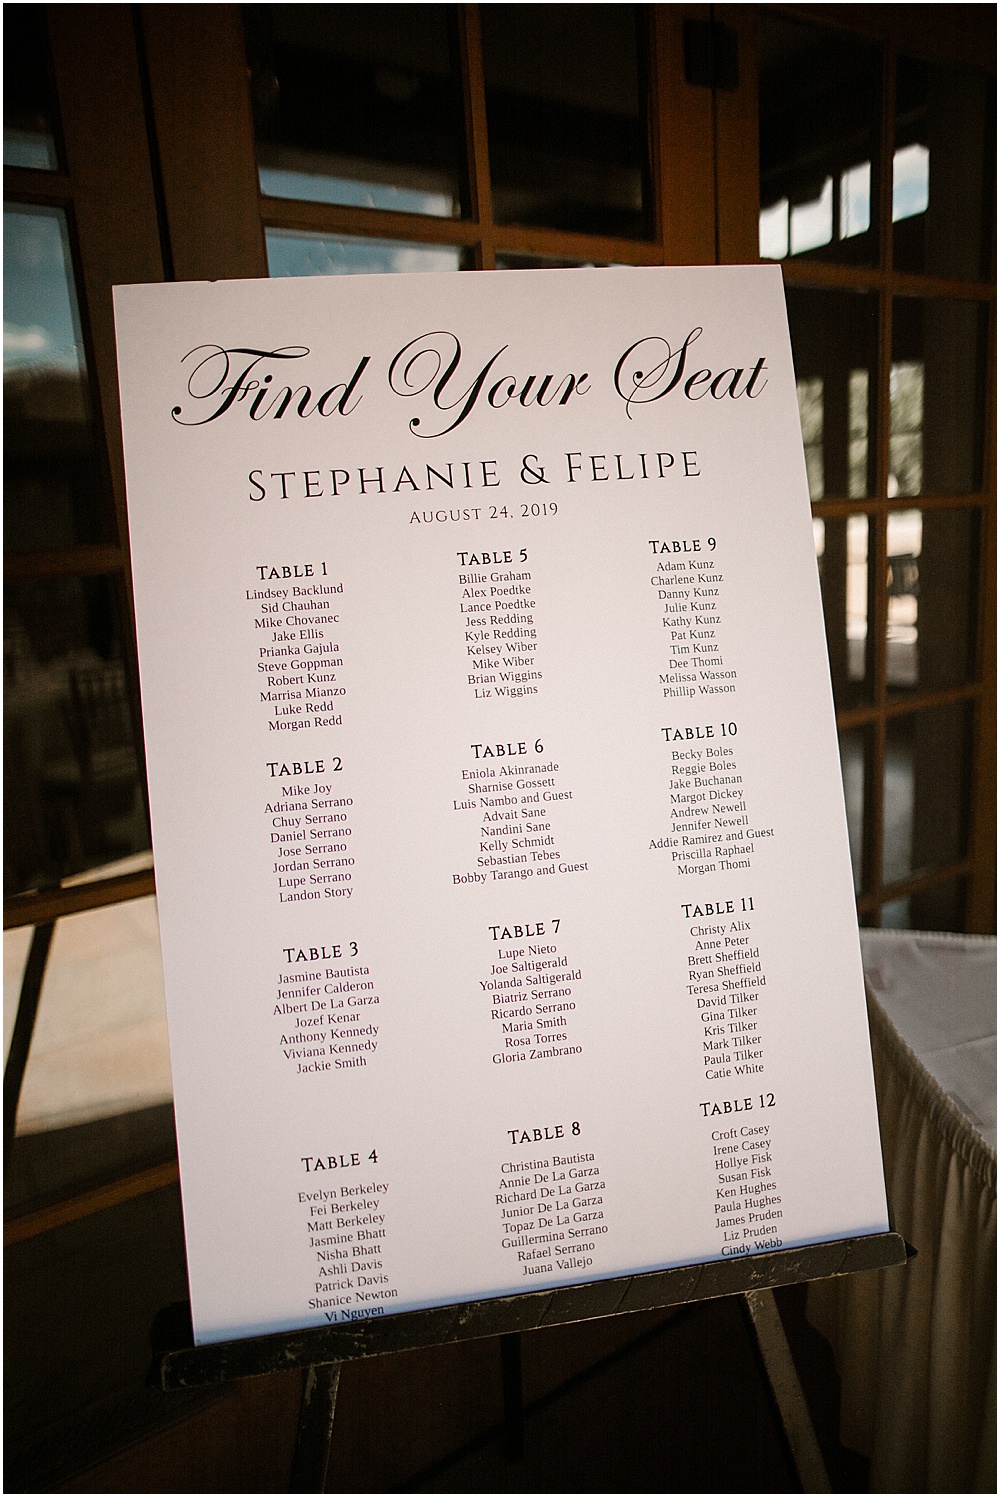 Find Your Seat
STEPHANIE & FELIPE
AUGUST 24, 2019
TABLE 1
Lindsey Backlund
Sid Chauhan
Mike Chovanec
Jake Ellis
Prianka Gajula
Steve Goppman
Robert Kunz
Marrisa Mianzo
Luke Redd
Morgan Redd
TABLE 2
Mike Joy
Adriana Serrano
Chuy Serrano
Daniel Serrano
Jose Serrano
Jordan Serrano
Lupe Serrano
Landon Story
TABLE 3
Jasmine Bautista
Jennifer Calderon
Albert De La Garza
Jozef Kenar
Anthony Kennedy
Viviana Kennedy
Jackie Smith
TABLE 4
Evelyn Berkeley
Fei Berkeley
Matt Berkeley
Jasmine Bhatt
Nisha Bhatt
Ashli Davis
Patrick Davis
Shanice Newton
Vi Nguyen
TABLE 5
Billie Graham
Alex Poedtke
Lance Poedtke
Jess Redding
Kyle Redding
Kelsey Wiber
Mike Wiber
Brian Wiggins
Liz Wiggins
TABLE 6
Eniola Akinranade
Sharnise Gossett
Luis Nambo and Guest
Advait Sane
Nandini Sane
Kelly Schmidt
Sebastian Tebes
Bobby Tarango and Guest
TABLE 7
Lupe Nieto
Joe Saltigerald
Yolanda Saltigerald
Biatriz Serrano
Ricardo Serrano
Maria Smith
Rosa Torres
Gloria Zambrano
TABLE 8
Christina Bautista
Annie De La Garza
Richard De La Garza
Junior De La Garza
Topaz De La Garza
Guillermina Serrano
Rafael Serrano
Juana Vallejo
TABLE 9
Adam Kunz
Charlene Kunz
Danny Kunz
Julie Kunz
Kathy Kunz
Pat Kunz
Tim Kunz
Dee Thomi
Melissa Wasson
Phillip Wasson
TABLE 10
Becky Boles
Reggie Boles
Jake Buchanan
Margot Dickey
Andrew Newell
Jennifer Newell
Addie Ramirez and Guest
Priscilla Raphael
Morgan Thomi
TABLE 11
Christy Alix
Anne Peter
Brett Sheffield
Ryan Sheffield
Teresa Sheffield
David Tilker
Gina Tilker
Kris Tilker
Mark Tilker
Paula Tilker
Catie White
TABLE 12
Croft Casey
Irene Casey
Hollye Fisk
Susan Fisk
Ken Hughes
Paula Hughes
James Pruden
Liz Pruden
Cindy Webb